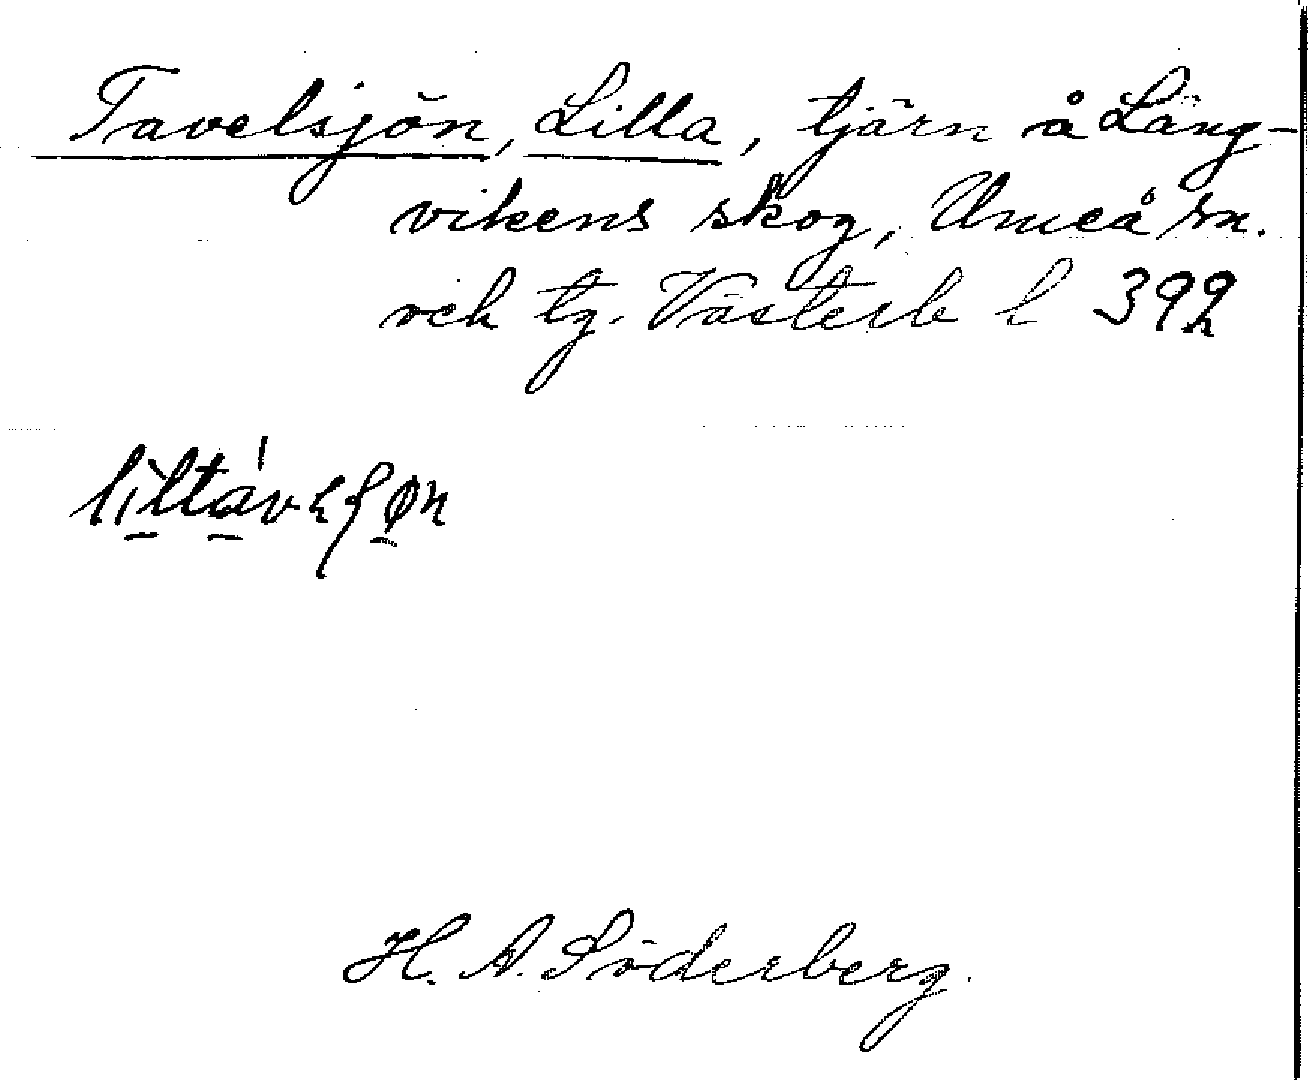 Tavelsjön, Lilla, tjärn å Lång-
vikens skog, Umeå sn.
och tg. Västerb l 392
H. A. Söderberg.